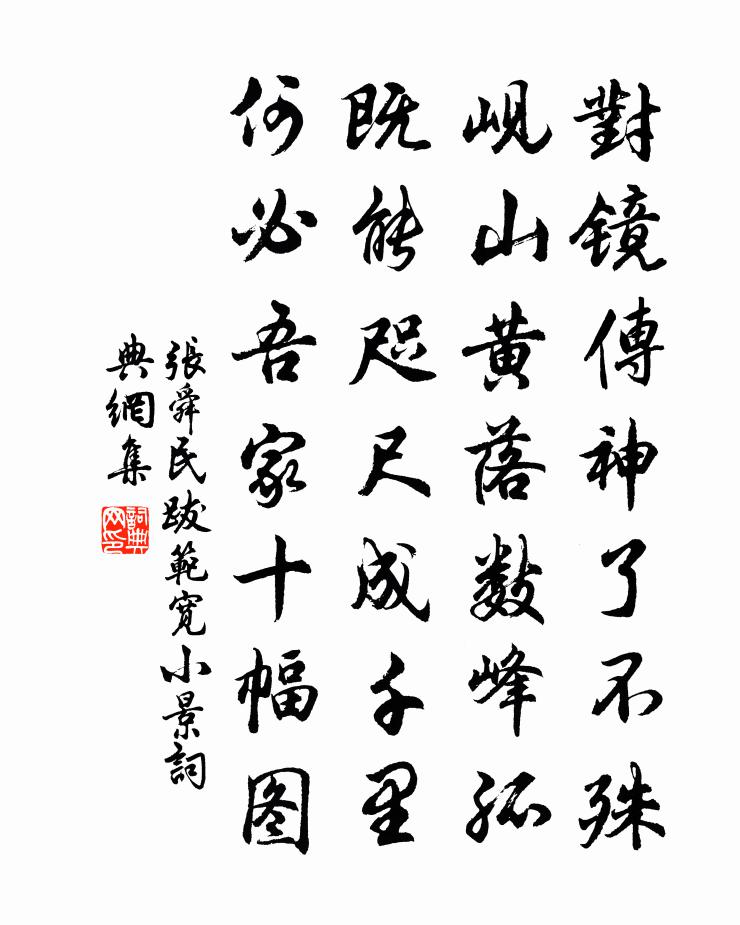 對镜傳神了不殊
峴山黄落数峰孤
既能咫尺成千里
何必吾家十幅图
張舜民跋範寬小景詞
典網集
詞典
网印